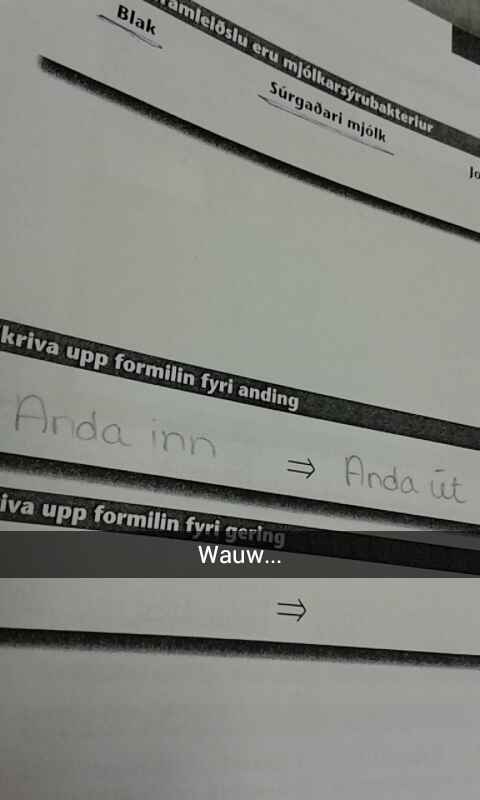 Blak
amleiðslu eru mjólkarsýrubakteriur
Súrgaðari mjólk
Jo
kriva upp formilin fyri anding
Anda inn ⇒ Anda út
iva upp formilin fyri gering
Wauw...
⇒